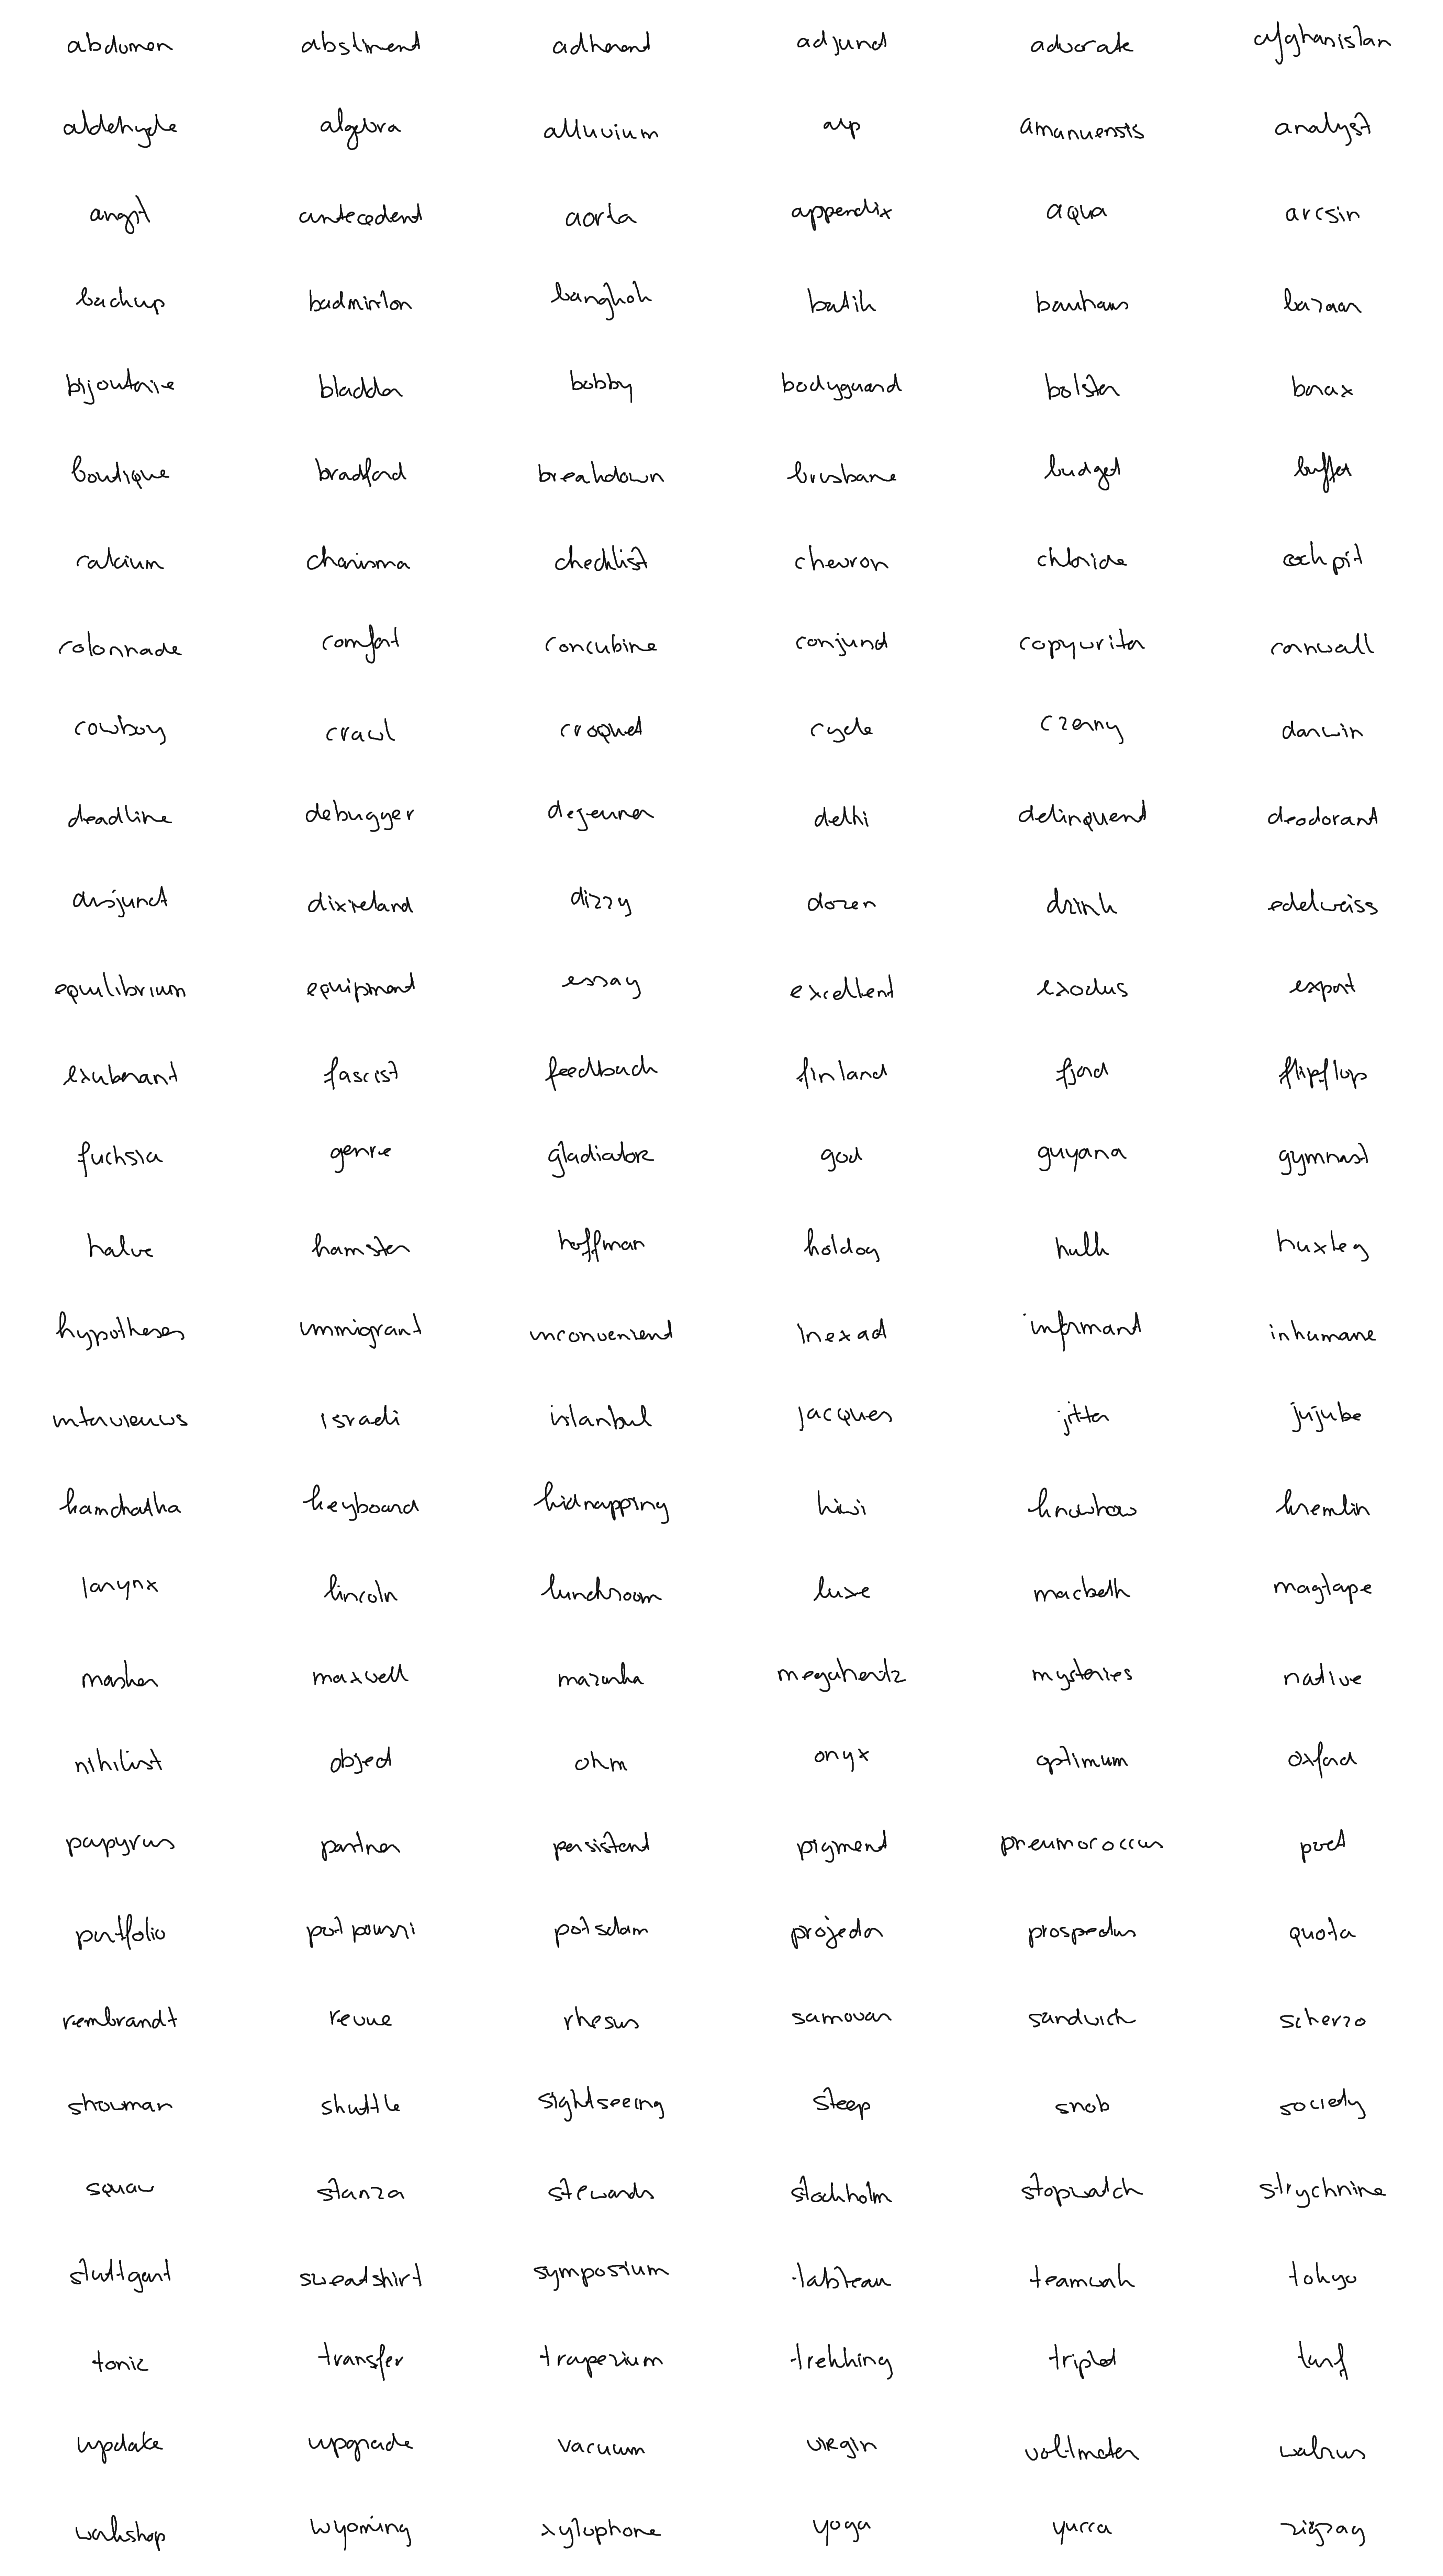 abdomen abstinent adherend adjunct advocate afghanistan
aldehyde algebra alluvium alp amanuensis analyst
angst antecedent aorta appendix aqua arcsin
backup badminton bangkok batik bauhaus bazaar
bijouterie bladder bobby bodyguard bolster borax
boutique bradford breakdown brisbane budget buffet
calcium charisma checklist chevron chloride cockpit
colonnade comfort concubine conjunct copywriter cornwall
cowboy crawl croquet cycle czerny darwin
deadline debugger dejeuner delhi delinquent deodorant
disjunct dixieland dizzy dozen drink edelweiss
equilibrium equipment essay excellent exodus export
exuberant fascist feedback finland fjord flipflop
fuchsia genre gladiator god guyana gymnast
halve hamster hoffman hotdog hulk huxley
hypotheses immigrant inconvenient inexact informant inhumane
interviews israeli istanbul jacques jitter jujube
kamchatka keyboard kidnapping kiwi knowhow kremlin
larynx lincoln lunchroom luxe macbeth magtape
masker maxwell mazurka megahertz mysteries native
nihilist object ohm onyx optimum oxford
papyrus partner persistent pigment pneumococcus poet
portfolio potpourri potsdam projector prospectus quota
rembrandt revue rhesus samovar sandwich scherzo
showman shuttle sightseeing sleep snob society
squaw stanza stewards stockholm stopwatch strychnine
stuttgart sweatshirt symposium tableau teamwork tokyo
tonic transfer trapezium trekking triplet turf
update upgrade vacuum virgin voltmeter walrus
workshop wyoming xylophone yoga yucca zigzag